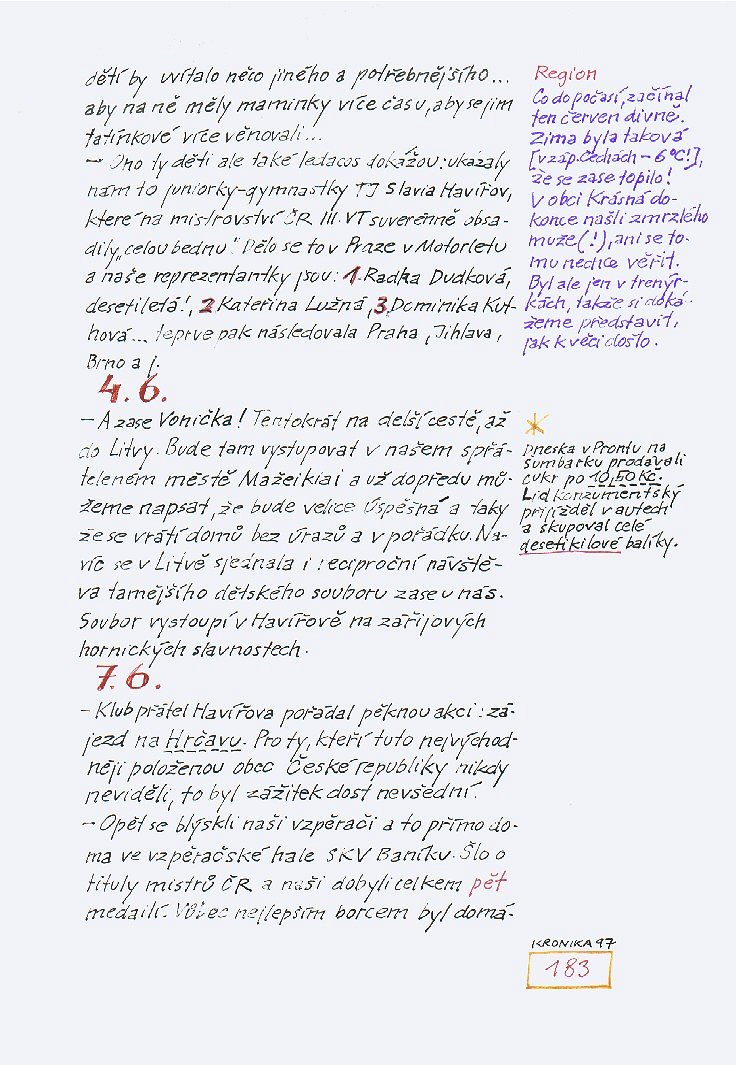 dětí by uvítalo něco jiného a potřebnějšího...
aby na ně měly maminky více času, aby se jim
tatínkové více věnovali...
– Ono ty děti ale také ledacos dokážou: ukázaly
nám to juniorky-gymnastky TJ Slavia Havířov,
které na mistrovství ČR III. VT suverénně obsa-
dily „celou bednu". Dělo se to v Praze v Motorletu
a naše reprezentantky jsou: 1. Radka Dudková,
desetiletá!, 2 Kateřina Lužná, 3. Dominika Kut-
hová... teprve pak následovala Praha, Jihlava,
Brno a j.
4.6.
– A zase Vonička! Tentokrát na delší cestě, až
do Litvy. Bude tam vystupovat v našem spřá-
teleném městě Mažeikiai a už dopředu mů-
žeme napsat, že bude velice úspěšná a taky
že se vrátí domů bez úrazů a v pořádku. Na-
víc se v Litvě sjednala i reciproční návště-
va tamějšího dětského souboru zase u nás.
Soubor vystoupí v Havířově na zářijových
hornických slavnostech.
7.6.
– Klub přátel Havířova pořádal pěknou akci: zá-
jezd na Hrčavu. Pro ty, kteří tuto nejvýchod-
něji položenou obec České republiky nikdy
neviděli, to byl zážitek dost nevšední.
– Opět se blýskli naši vzpěrači a to přímo do-
ma ve vzpěračské hale SKV Baníku. Šlo o
tituly mistrů ČR a naši dobyli celkem pět
medailí. Vůbec nejlepším borcem byl domá-
Region
Co do počasí, začínal
ten červen divně.
Zima byla taková
[v záp. Čechách – 6°C!],
že se zase topilo!
V obci Krásná do-
konce našli zmrzlého
muže (!), ani se to-
mu nedice věřit.
Byl ale jen v trenýr-
kách, takže si doká-
žeme představit,
jak k věci došlo.
*
Dneska v Prontu na
Šumbarku prodávali
cukr po 10,50 Kč.
Lid konzumentský
přijížděl v autech
a skupoval celé
desetikilové balíky.
KRONIKA 97
183